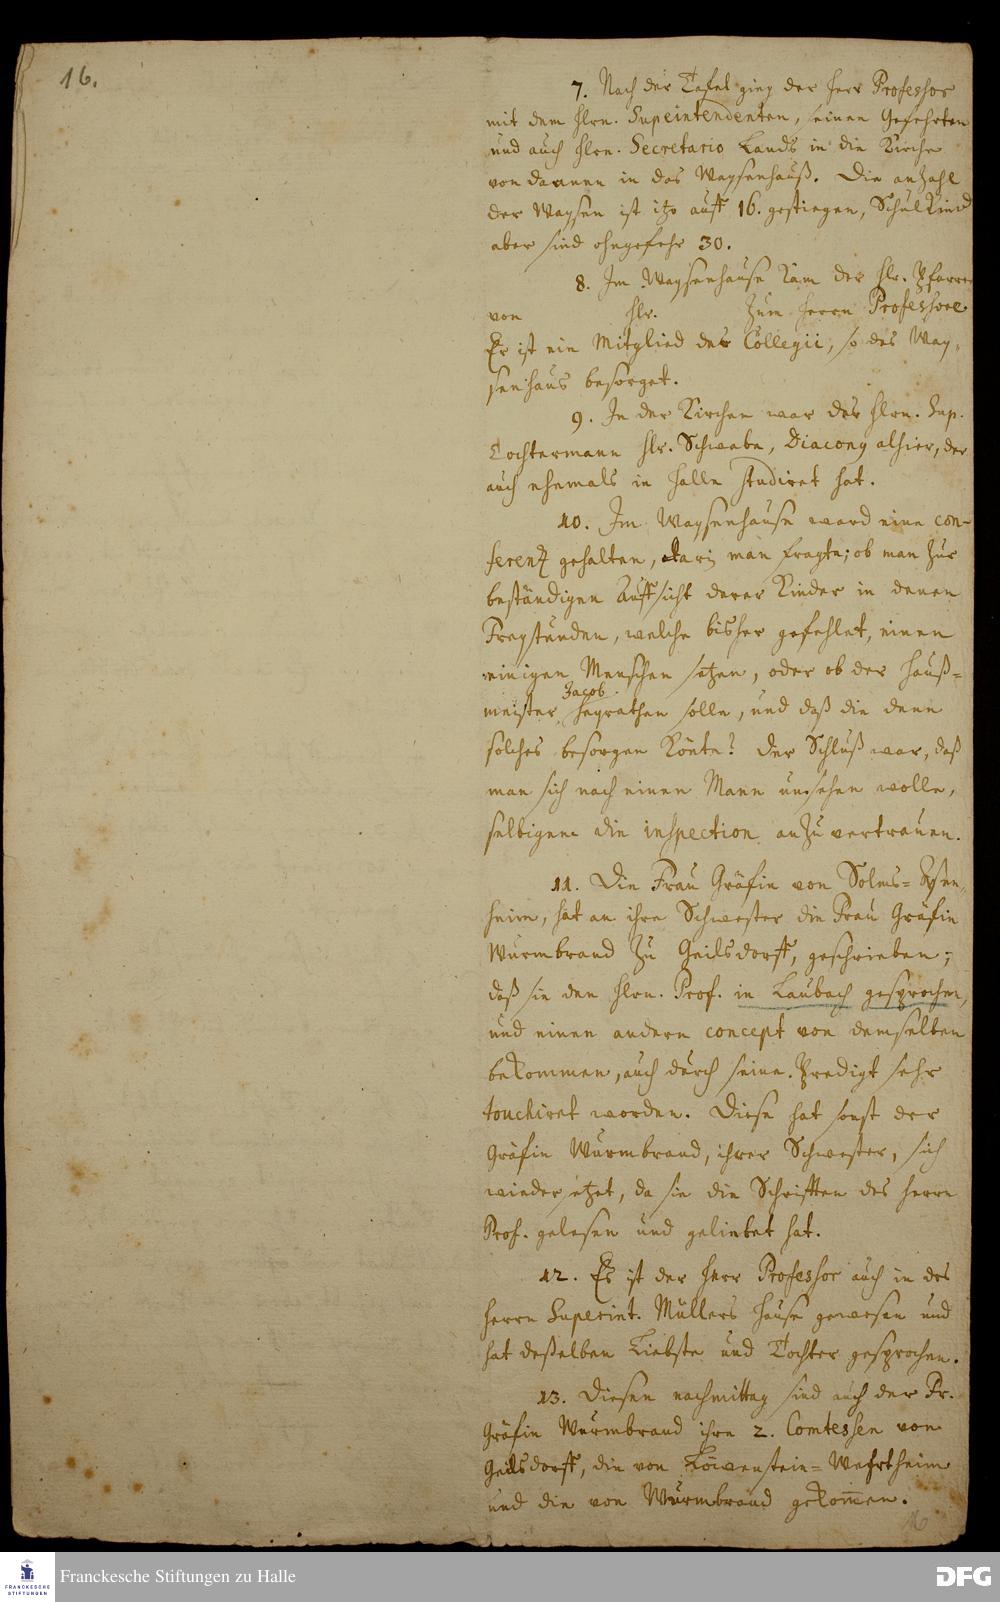 16.
7. Nach der Tafel gieng der Herr Professor
mit dem Hrn. Supeintendenten, seinen Gefehrten
und auch Hrn. Secretario Lands in die Kirche
von dannen in das Waysenhauß. Die anzahl
der Waysen ist itzo auff 16. gestiegen, Schulkind
aber sind ohngefehr 30.
8. Im Waysenhause kam der Hr. Pfarrer
von Hr. zum Herrn Professore
Er ist ein Mitglied des Collegii, so das Way-
senhaus besorget.
9. In der Kirchen war des Hrn. Sup.
Tochtermann Hr. Schwabe, Diaconus alhier, der
auch ehemals in Halle studiret hat.
10. Im Waysenhause ward eine con-
ferentz gehalten, darin man fragte; ob man zur
beständigen Auffsicht derer Kinder in denen
Freystunden, welche bisher gefehlet, einen
einigen Menschen setzen, oder ob der Hauß-
meister Jacob heyrathen solle, und daß die denn
solches besorgen könte? Der Schluß war, daß
man sich nach einen Mann umsehen wolle,
selbigem die inspection anzuvertrauen.
11. Die Frau Gräfin von Solms-
heim, hat an ihre Schwester die Frau Gräfin
Wurmbrand zu Geilsdorff, geschrieben;
daß sie den Hrn. Prof. in Laubach gesprochen,
und einen andern concept von demselben
bekommen, auch durch seine Predigt sehr
touchiret worden. Diese hat sonst der
Gräfin Wurmbrand, ihrer Schwester, sich
wiedersetzet, da sie die Schrifften des Herrn
Prof. gelesen und geliebet hat.
12. Es ist der Herr Professor auch in des
Herrn Superint. Müllers Hause gewesen und
hat deßelben Liebste und Tochter gesprochen.
13. Diesen nachmittag sind auch der Fr.
Gräfin Wurmbrand ihre 2. Comtessen von
Geilsdorff, die von Löwenstein-Wehrtheim
und die von Wurmbrand gekommen.
16
FRANCKESCHE STIFTUNGEN
Franckesche Stiftungen zu Halle
DFG